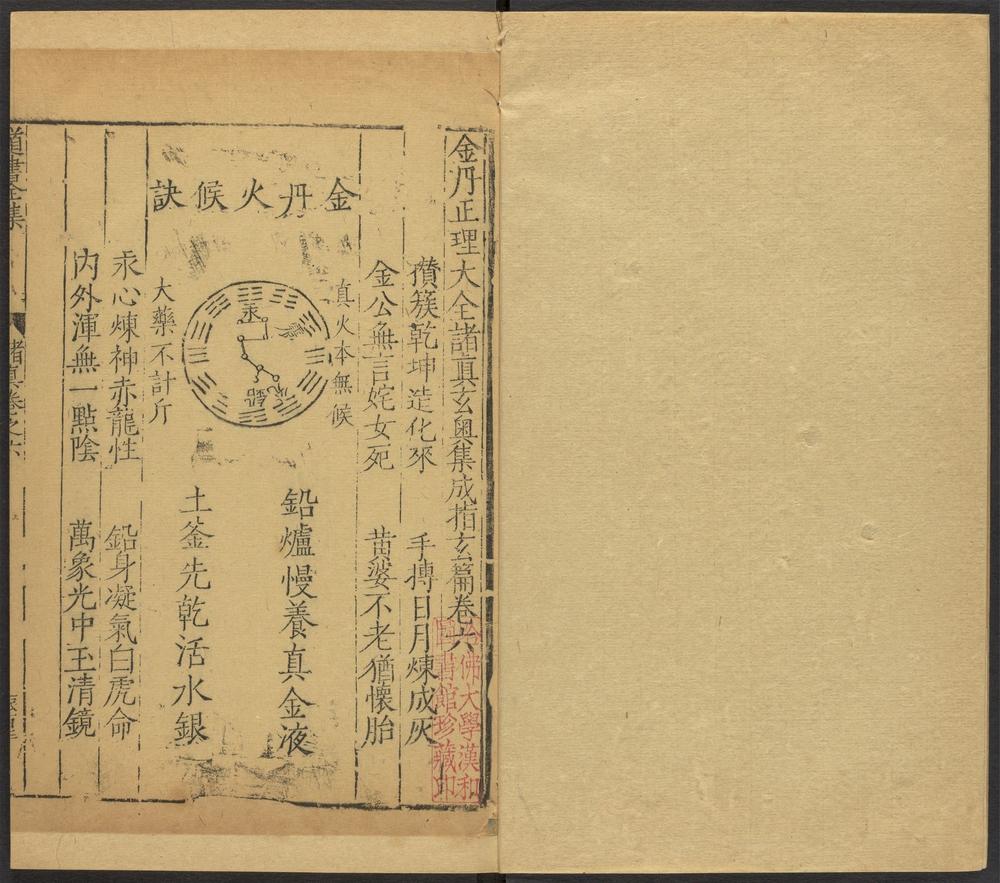 金丹正理大全諸真玄奧集成指玄篇卷六
哈佛大學漢和
圖書館珍藏印
攢簇乾坤造化來　手摶日月煉成灰
金公無言姹女死　黃婆不老猶懷胎
金丹火候訣
真火本無候
汞
鉛
大藥不計斤
鉛爐慢養真金液
土釜先乾活水銀
汞心煉神赤龍性　鉛身凝氣白虎命
內外渾無一點陰　萬象光中玉清鏡
道書全集
諸真卷之六